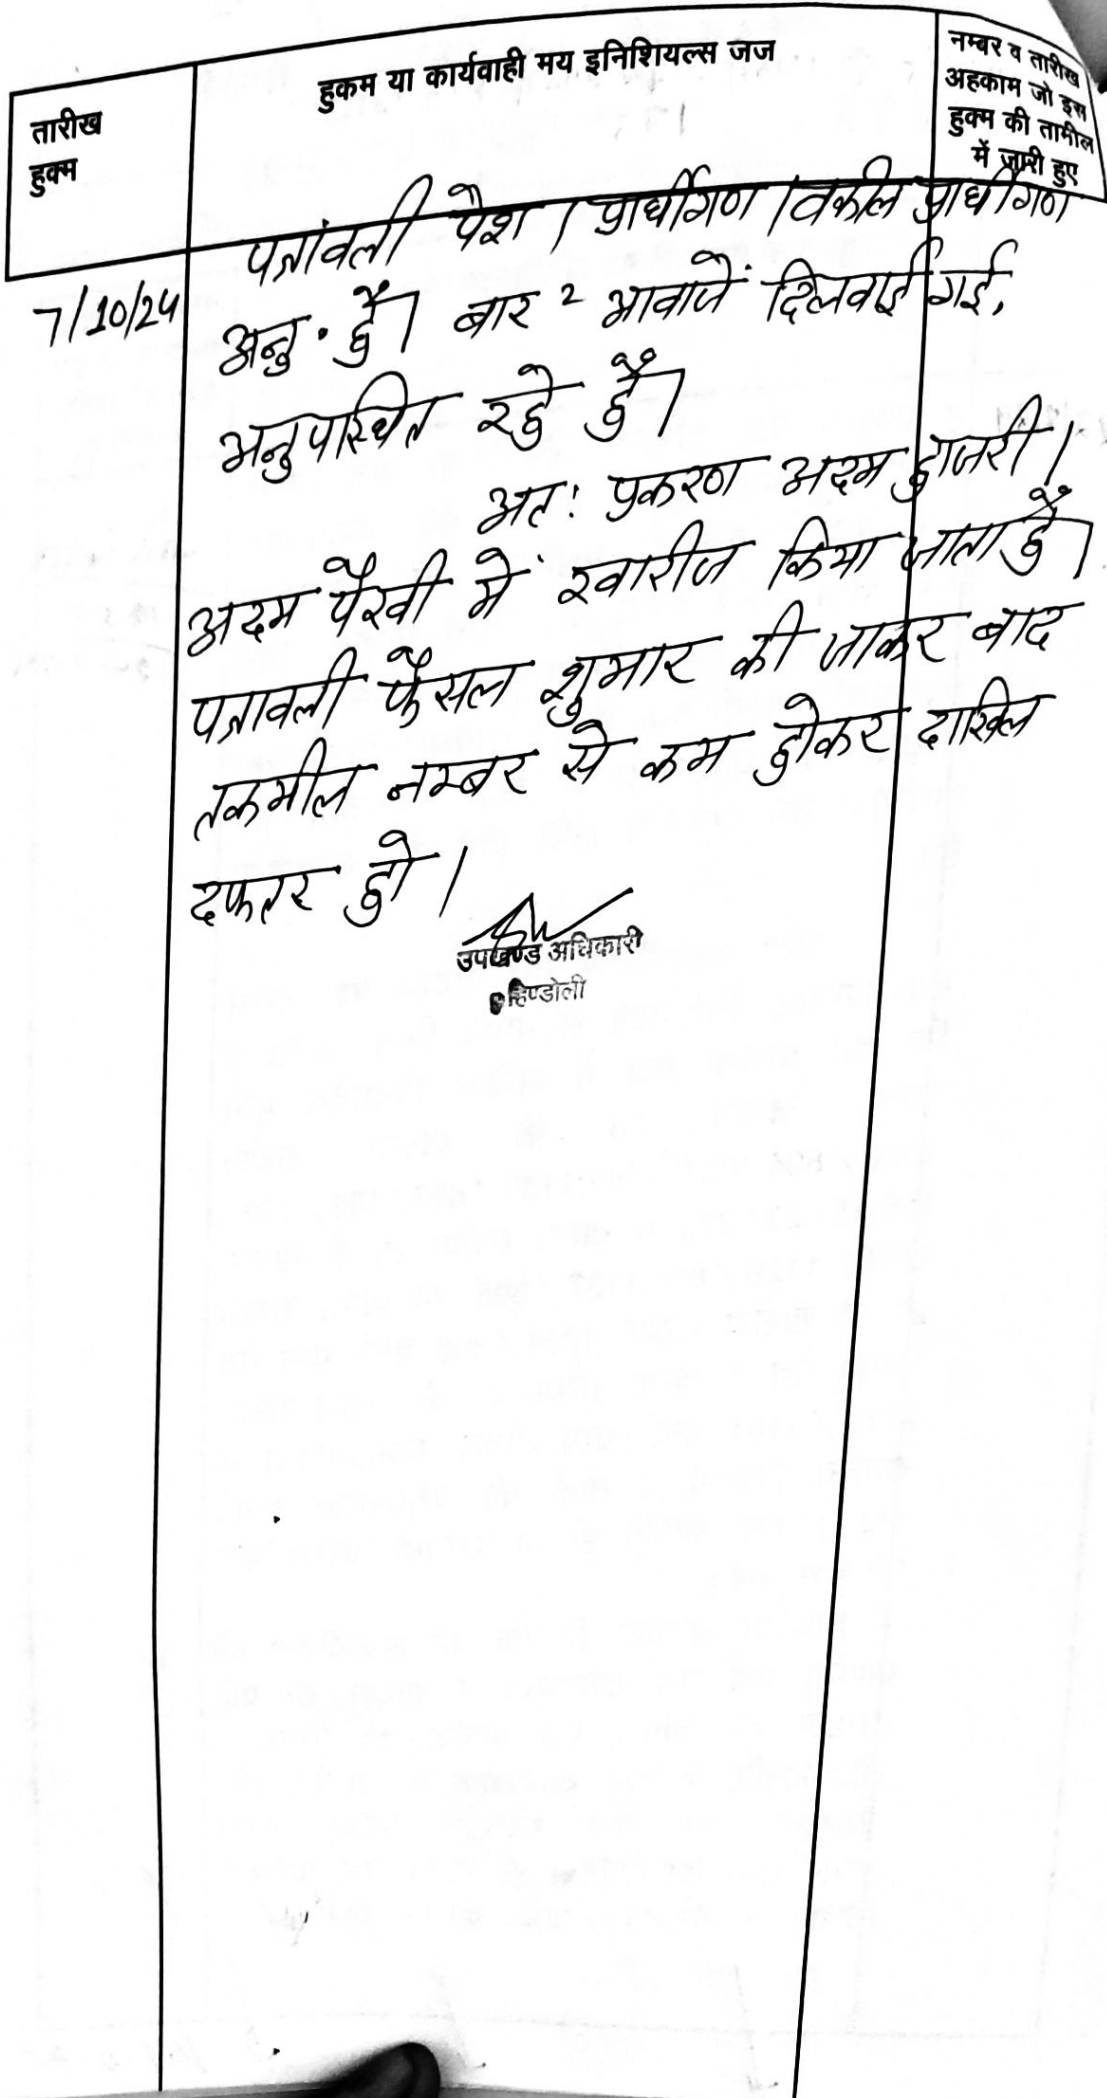 तारीख
हुक्म
हुकम या कार्यवाही मय इनिशियल्स जज
नम्बर व तारीख
अहकाम जो इस
हुक्म की तामील
में जारी हुए
7/10/24
पत्रांवली पेश । प्रार्थीगण । वकील प्रार्थीगण
अनु. है। बार २ आवाजें दिलवाई गई,
अनुपस्थित रहे हैं।
अतः प्रकरण अदम हाजरी ।
अदम पैरवी में खारीज किया जाता है।
पत्रावली फैसल शुमार की जाकर बाद
तकमील नम्बर से कम होकर दाखिल
दफ्तर हो ।
उपखण्ड अधिकारी
हिण्डोली